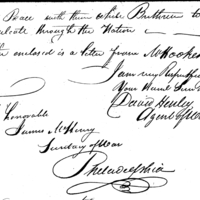 Peace with them whilst Brethren to
through the Nation
enclosed is a letter from Mr Hooker
I am very Respectfully
Your Humb Serv
David Henley
Agent of War
Honorable
James McHenry
Secretary of War
Philadelphia